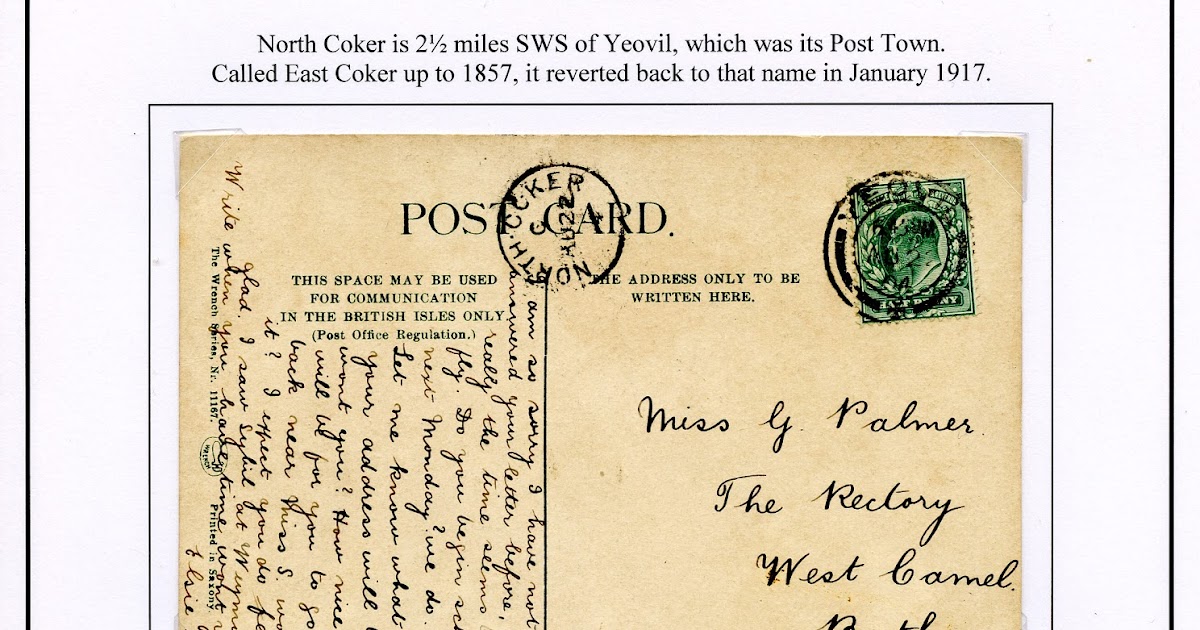 North Coker is 2½ miles SWS of Yeovil, which was its Post Town.
Called East Coker up to 1857, it reverted back to that name in January 1917.
POST CARD.
NORTH·COKER
C
AU 22
THIS SPACE MAY BE USED
FOR COMMUNICATION
IN THE BRITISH ISLES ONLY.
(Post Office Regulation.)
THE ADDRESS ONLY TO BE
WRITTEN HERE.
HALFPENNY
I am so sorry I have not
answered your letter before,
really the time seems
fly. Do you begin sc
next Monday? we do.
Let me know what
your address will
wont you? How nice
will be for you to go
back near Miss S. wo
it? I expect you do fe
glad. I saw Sybil at Weym
Write when you have time wont
Elsie
The Wrench Series, Nr. 11167.
WRENCH
Printed in Saxony.
Miss G. Palmer.
The Rectory
West Camel.